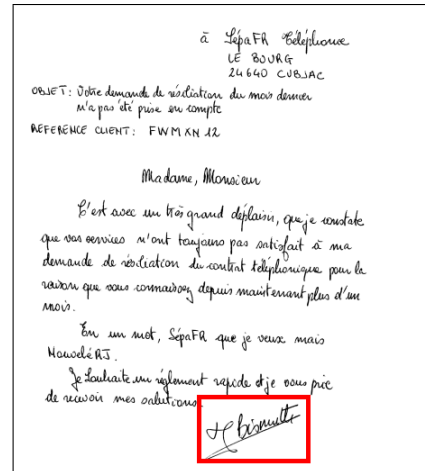 à SépaFR Téléphonie
LE BOURG
24640 CUBJAC
OBJET : Votre demande de résiliation du mois dernier
n'a pas été prise en compte
REFERENCE CLIENT : FWMXN 12
Madame, Monsieur
C'est avec un très grand déplaisir, que je constate
que vos services n'ont toujours pas satisfait à ma
demande de résiliation du contrat téléphonique pour la
raison que vous connaissez depuis maintenant plus d'un
mois.
En un mot, SépaFR que je veux mais
NouveléRJ.
Je souhaite un règlement rapide et je vous prie
de recevoir mes salutions.